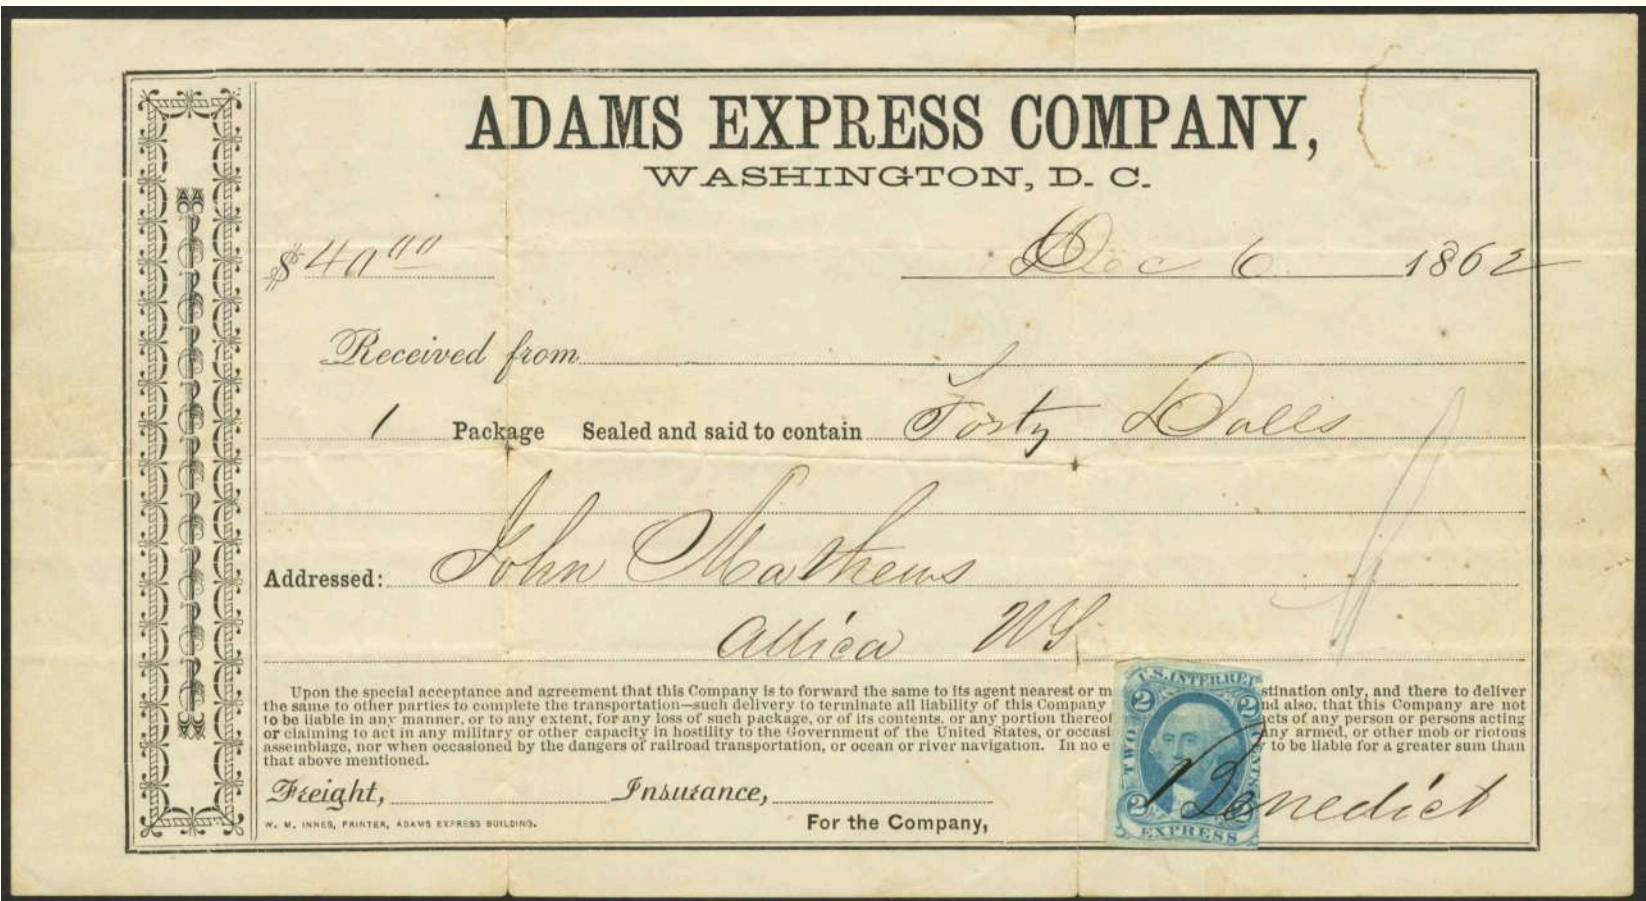 ADAMS EXPRESS COMPANY,
WASHINGTON, D. C.
$40 00 Dec 6 1862
Received from
1 Package Sealed and said to contain Forty Dolls
Addressed: John Mathews
Attica
Upon the special acceptance and agreement that this Company is to forward the same to its agent nearest or m stination only, and there to deliver
the same to other parties to complete the transportation—such delivery to terminate all liability of this Company nd also, that this Company are not
to be liable in any manner, or to any extent, for any loss of such package, or of its contents, or any portion thereof cts of any person or persons acting
or claiming to act in any military or other capacity in hostility to the Government of the United States, or occasi any armed, or other mob or riotous
assemblage, nor when occasioned by the dangers of railroad transportation, or ocean or river navigation. In no e to be liable for a greater sum than
that above mentioned.
Freight, Insurance,
W. M. INNES, PRINTER, ADAMS EXPRESS BUILDING.
For the Company, Benedict
U.S. INTER. REV.
2 2
TWO CENTS
2 2
EXPRESS